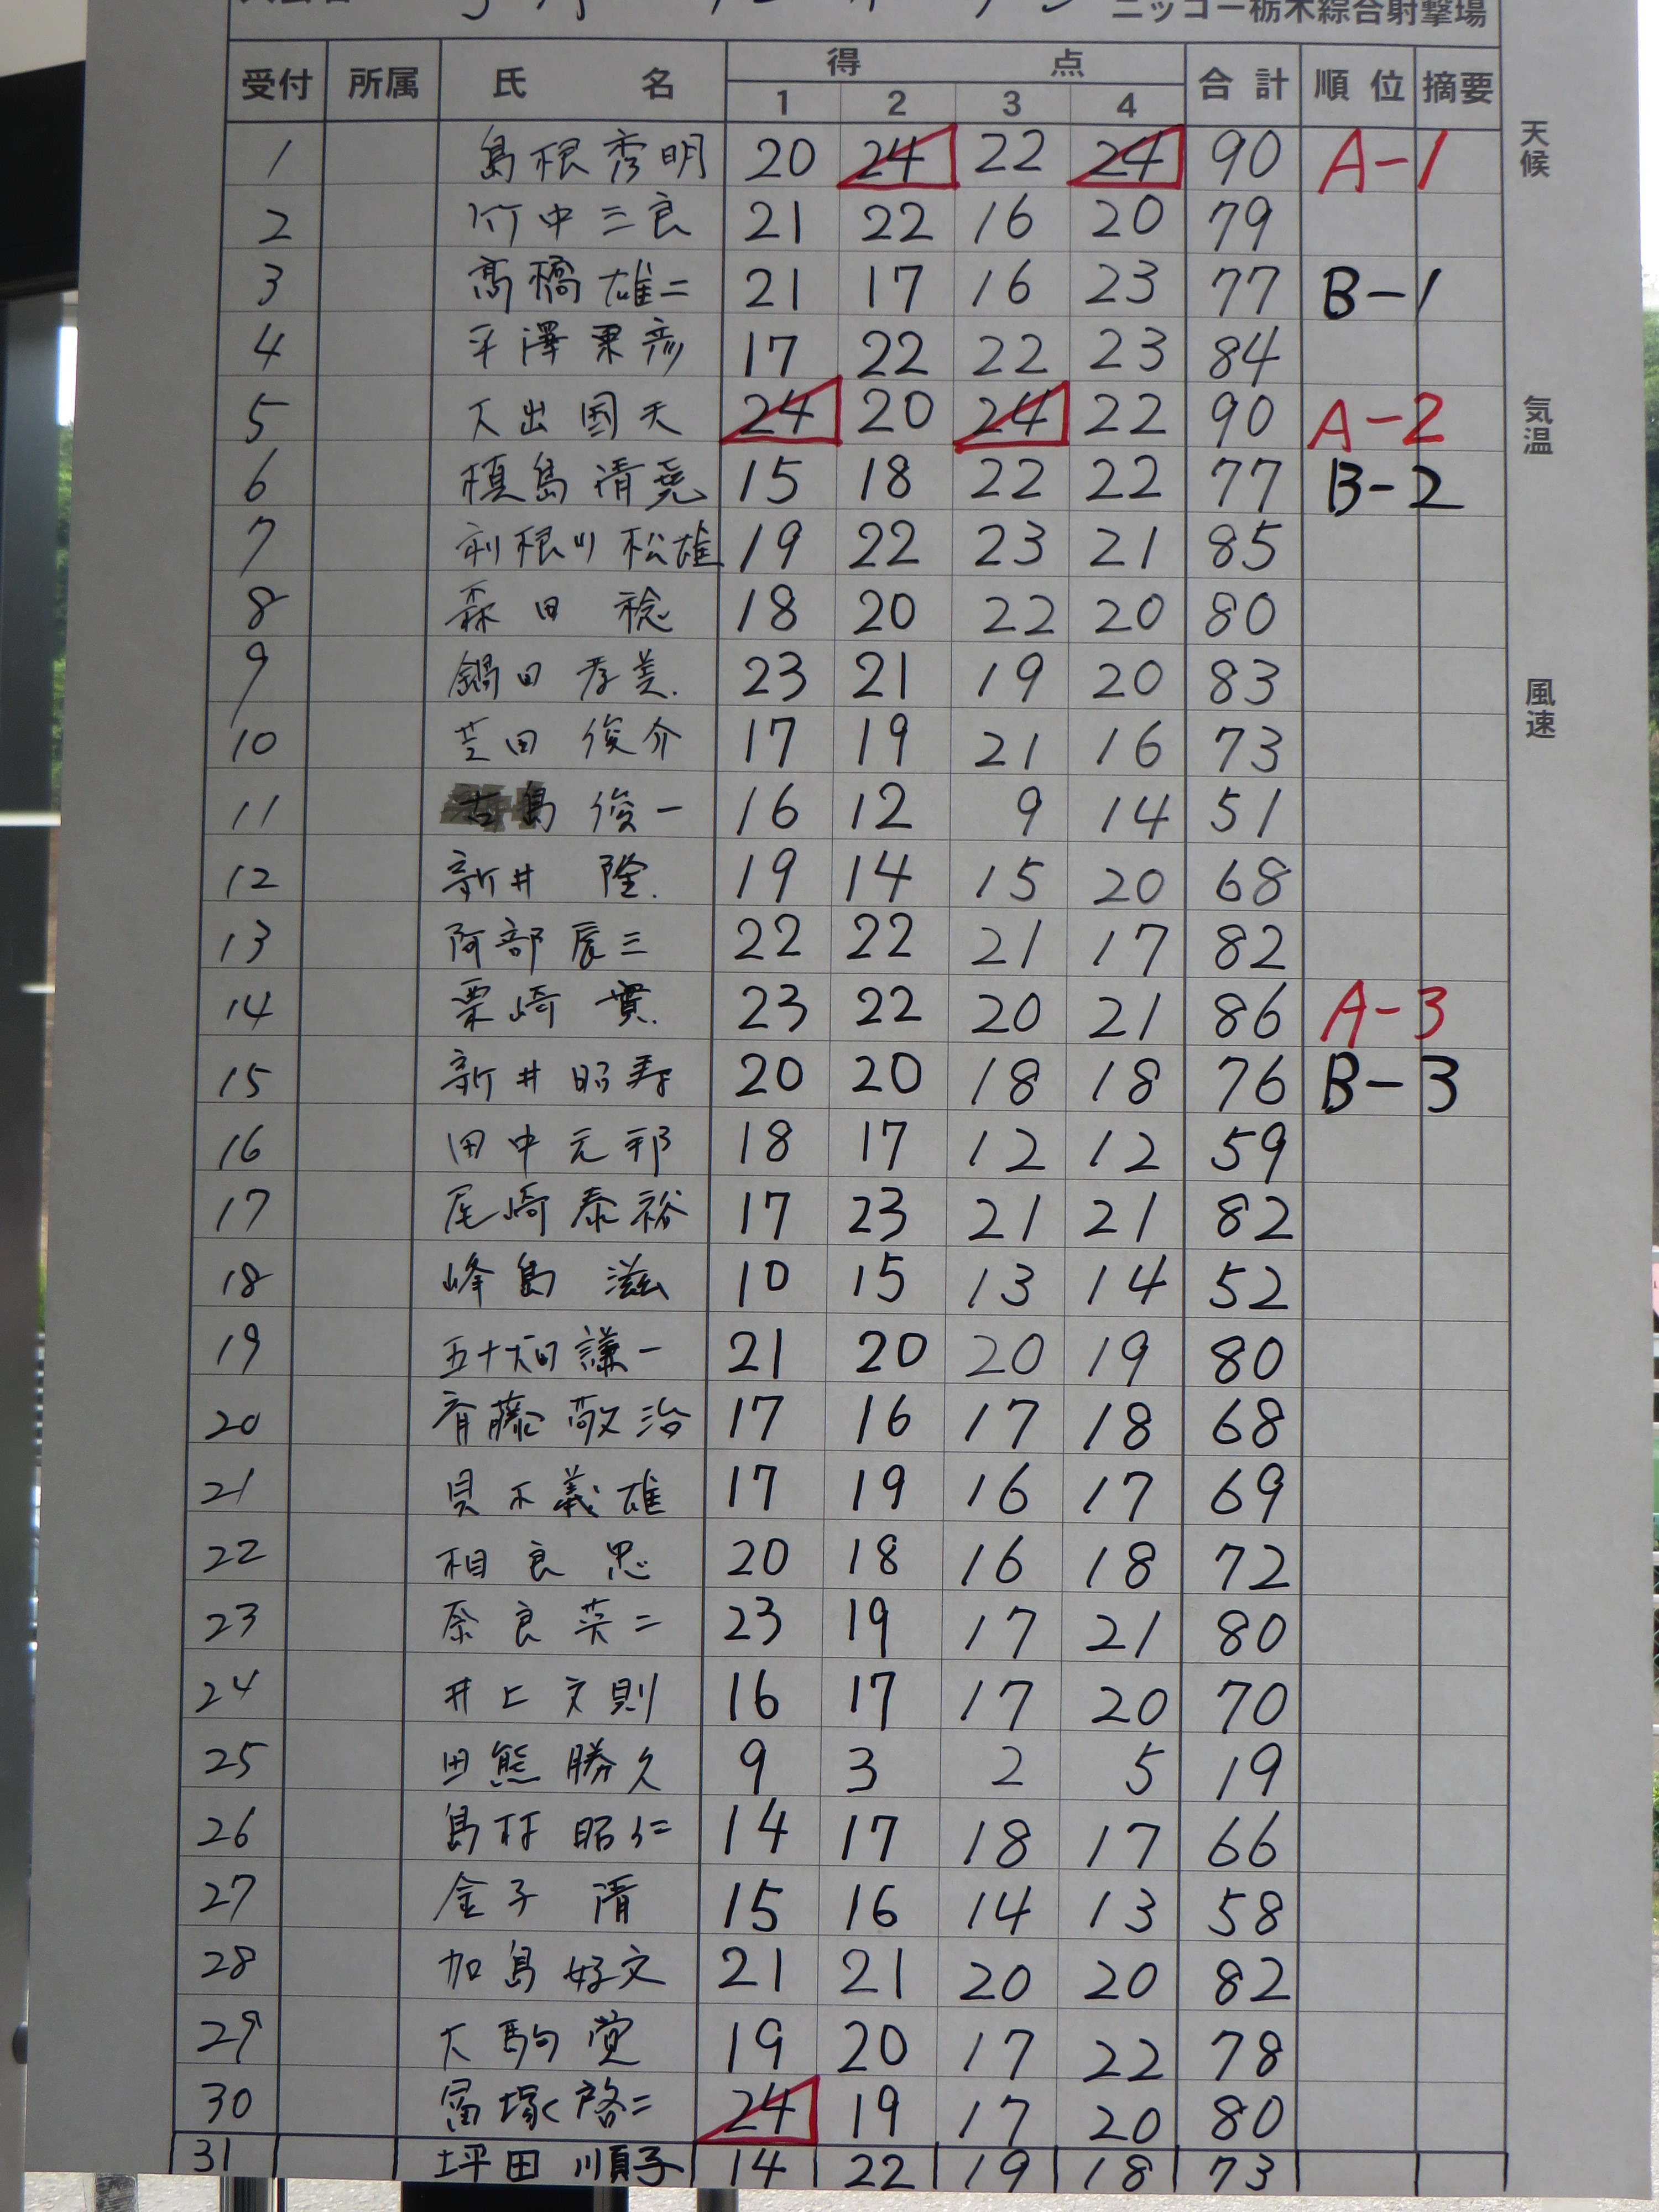 ニッコー栃木綜合射撃場
受付 所属 氏名 得点 合計 順位 摘要
1 2 3 4
天候
気温
風速
1 島根秀明 20 24 22 24 90 A-1
2 竹中三良 21 22 16 20 79
3 髙橋雄二 21 17 16 23 77 B-1
4 平澤秉彦 17 22 22 23 84
5 大出国天 24 20 24 22 90 A-2
6 槙島清尭 15 18 22 22 77 B-2
7 利根川松雄 19 22 23 21 85
8 森田稔 18 20 22 20 80
9 鍋田孝美 23 21 19 20 83
10 芝田俊介 17 19 21 16 73
11 古島俊一 16 12 9 14 51
12 新井隆 19 14 15 20 68
13 阿部辰三 22 22 21 17 82
14 栗崎實 23 22 20 21 86 A-3
15 新井昭寿 20 20 18 18 76 B-3
16 田中元邦 18 17 12 12 59
17 尾崎泰裕 17 23 21 21 82
18 峰島滋 10 15 13 14 52
19 五十畑謙一 21 20 20 19 80
20 斉藤敬治 17 16 17 18 68
21 貝木義雄 17 19 16 17 69
22 相良忠 20 18 16 18 72
23 奈良英二 23 19 17 21 80
24 井上文則 16 17 17 20 70
25 田熊勝久 9 3 2 5 19
26 島村昭仁 14 17 18 17 66
27 金子清 15 16 14 13 58
28 加島好文 21 21 20 20 82
29 大駒覚 19 20 17 22 78
30 冨塚啓二 24 19 17 20 80
31 坪田順子 14 22 19 18 73